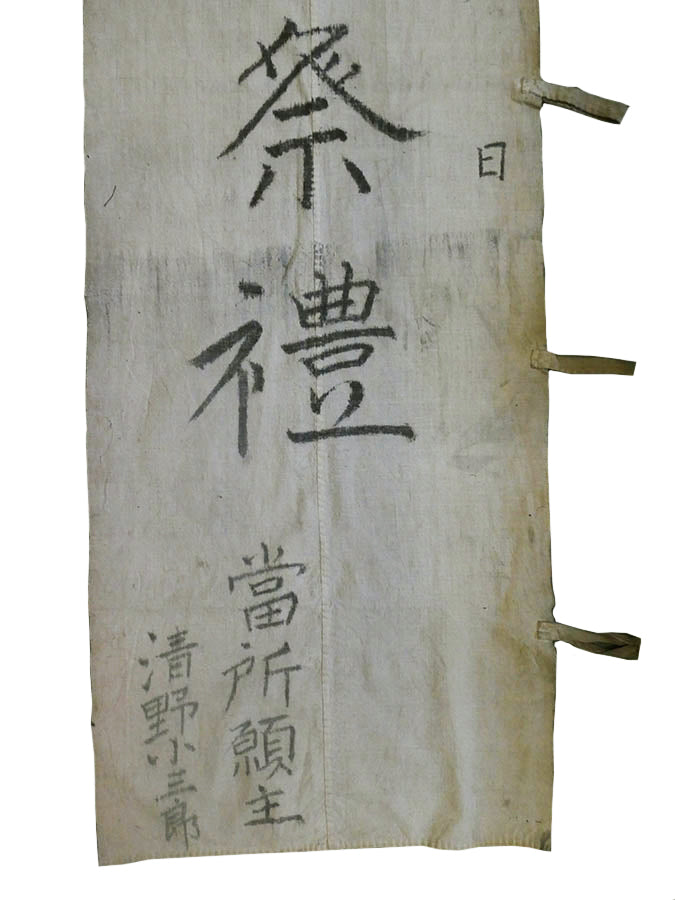 日
祭禮
當所願主
清野小三郎